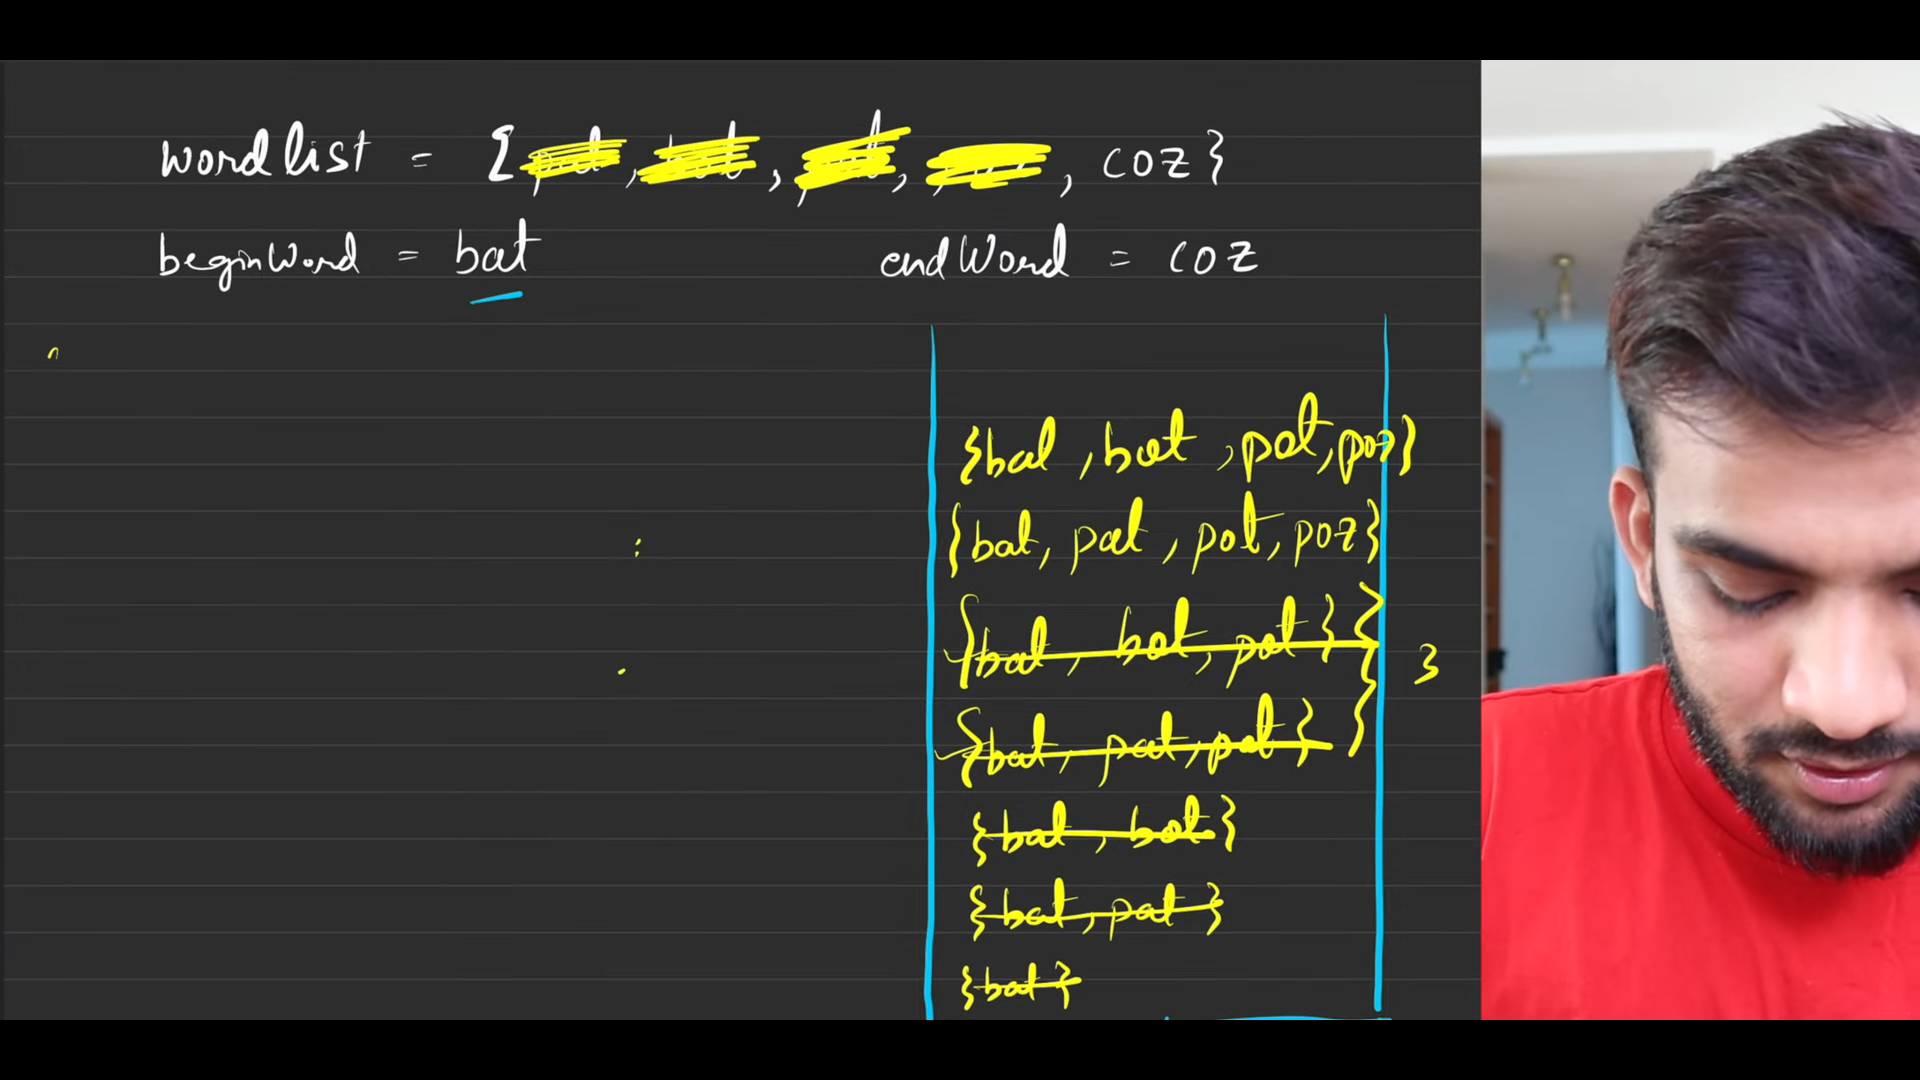 wordlist = {pat, bot, pot, poz, coz}
beginWord = bat
endWord = coz
{bat, bot, pot, poz}
{bat, pat, pot, poz}
{bat, bot, pot} }
3
{bat, pat, pot} }
{bat, bot}
{bat, pat}
{bat}